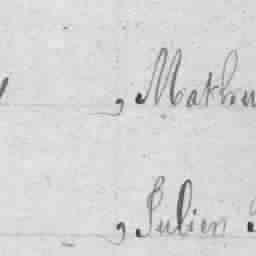 , Mathu
, Julien